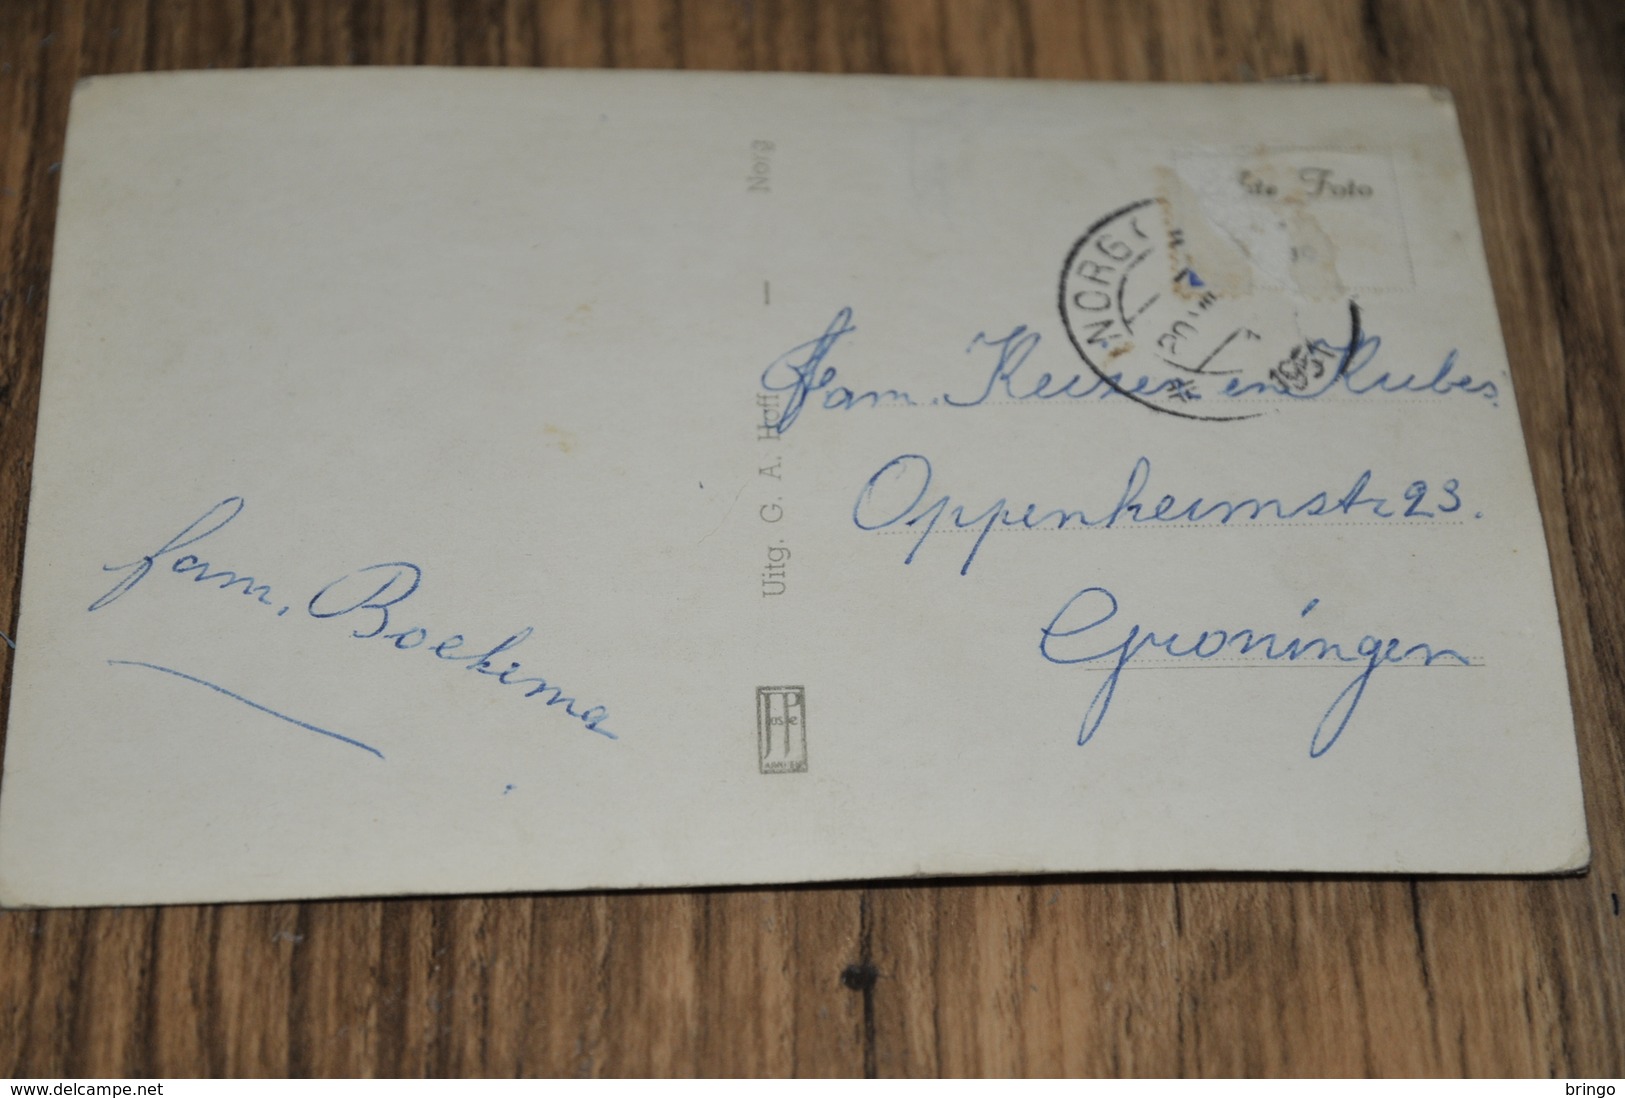 fam. Boekema
Uitg. G. A. Hoff — Norg
JosPé
Foto
NORG
1951
Fam. Keizer en Kubes.
Oppenheimstr 23.
Groningen
www.delcampe.net
bringo